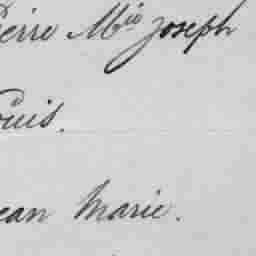 Pierre Mie Joseph
Louis.
Jean Marie.